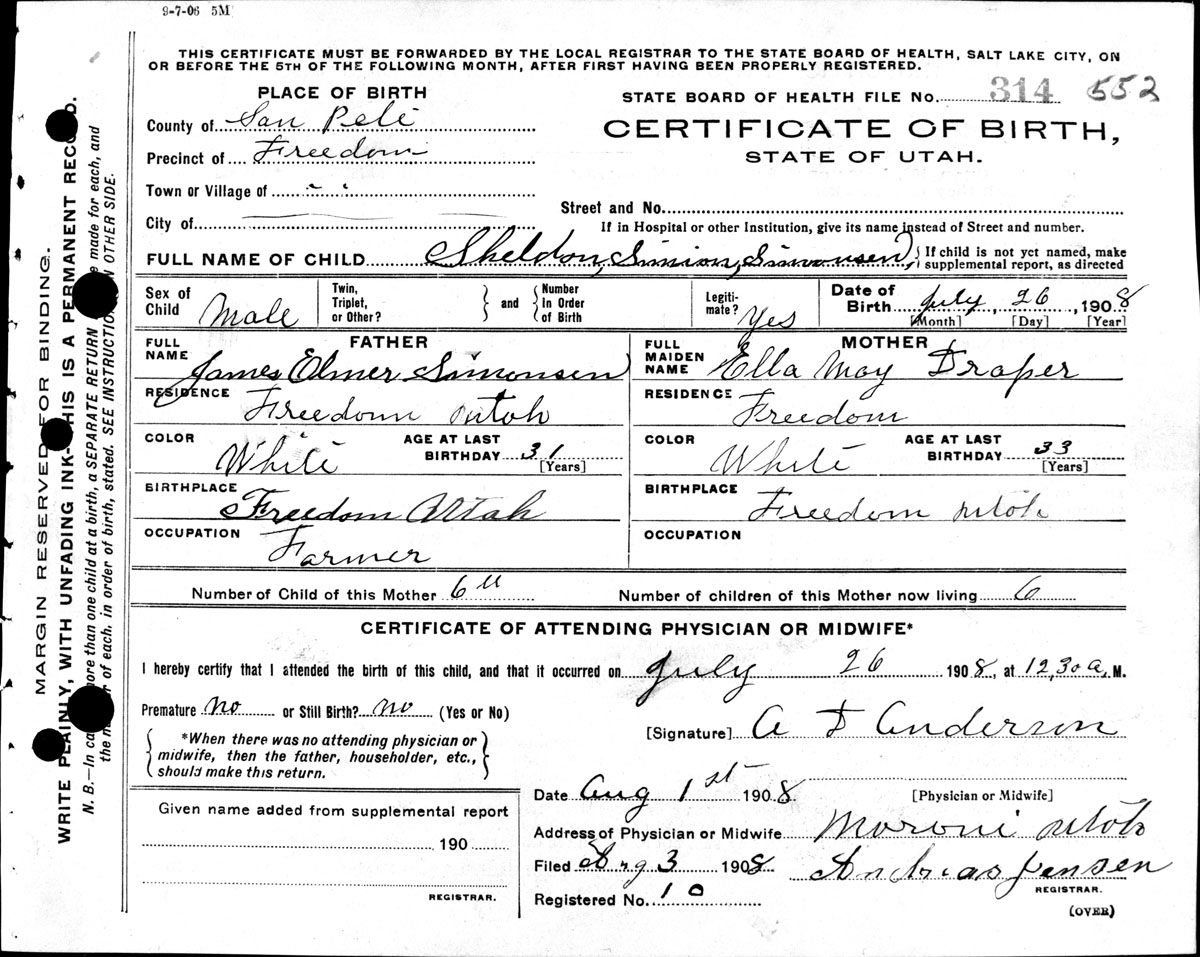 9-7-06 5M
THIS CERTIFICATE MUST BE FORWARDED BY THE LOCAL REGISTRAR TO THE STATE BOARD OF HEALTH, SALT LAKE CITY, ON
OR BEFORE THE 5TH OF THE FOLLOWING MONTH, AFTER FIRST HAVING BEEN PROPERLY REGISTERED.
PLACE OF BIRTH
STATE BOARD OF HEALTH FILE No. 314 552
County of San Pete
CERTIFICATE OF BIRTH,
Precinct of Freedom
STATE OF UTAH.
Town or Village of " "
Street and No.
City of
If in Hospital or other Institution, give its name instead of Street and number.
FULL NAME OF CHILD Sheldon, Simion, Simonsen, { If child is not yet named, make
supplemental report, as directed
Sex of Child Male
Twin, Triplet, or Other? } and { Number In Order of Birth
Legiti-mate? Yes
Date of Birth July, 26, 1908
[Month] [Day] [Year]
FATHER
FULL NAME James Elmer Simonsen
RESIDENCE Freedom Utah
COLOR White
AGE AT LAST BIRTHDAY 31
[Years]
BIRTHPLACE Freedom Utah
OCCUPATION Farmer
MOTHER
FULL MAIDEN NAME Ella May Draper
RESIDENCE Freedom
COLOR White
AGE AT LAST BIRTHDAY 33
[Years]
BIRTHPLACE Freedom Utah
OCCUPATION
Number of Child of this Mother 6
Number of children of this Mother now living 6
CERTIFICATE OF ATTENDING PHYSICIAN OR MIDWIFE*
I hereby certify that I attended the birth of this child, and that it occurred on July 26 1908, at 12,30 a, M.
Premature No or Still Birth? No (Yes or No)
[Signature] A D Anderson
{ *When there was no attending physician or
midwife, then the father, householder, etc.,
should make this return. }
Date Aug 1st 1908
[Physician or Midwife]
Given name added from supplemental report
190
REGISTRAR.
Address of Physician or Midwife Moroni Utah
Filed Aug 3 1908 Andreas Jensen
REGISTRAR.
Registered No. 10
(OVER)
MARGIN RESERVED FOR BINDING.
WRITE PLAINLY, WITH UNFADING INK—THIS IS A PERMANENT RECORD.
N. B.—In case more than one child at a birth, a SEPARATE RETURN made for each, and
the number of each, in order of birth, stated. SEE INSTRUCTIONS ON OTHER SIDE.